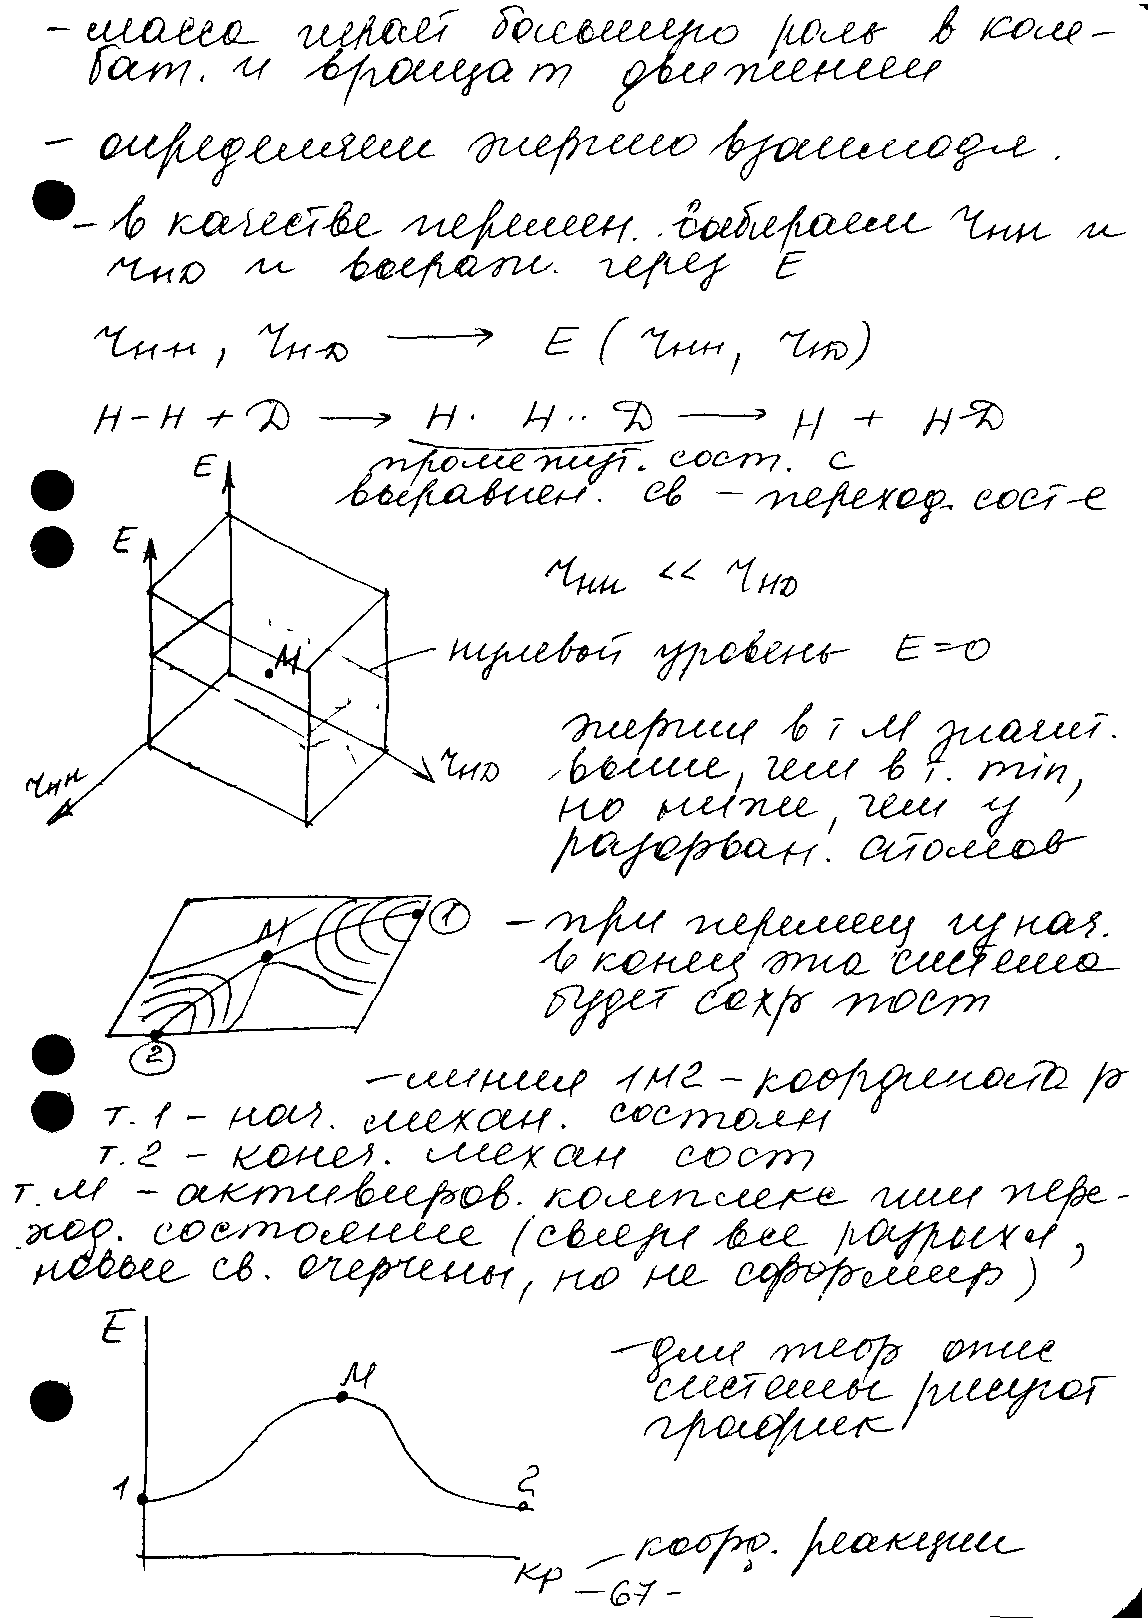 - масса играет большую роль в коле-
бат. и вращат движении
- определяем энергию взаимодл.
- в качестве перемен. выбираем rнн и
rнд и выраж. через E
rнн, rнд → E (rнн, rнд)
H-H + Д → H· H·· Д → H + HД
промежут. сост. с
выравнен. св - переход. сост-е
E
E
rнн << rнд
M
нулевой уровень E=0
rнн
rнд
энергия в т М значит.
выше, чем в т. min,
но ниже, чем у
разорван. атомов
M
1
2
- при перемещ из нач.
в конец эта система
будет сохр пост
- линия 1М2 - координата р
т.1 - нач. механ. состоян
т.2 - конеч. механ сост
т.М - активиров. комплекс или пере-
ход. состояние (связи все разрыхл,
новые св. очерчены, но не сформир)
E
M
1
2
- для теор опис
системы рисуют
график
кр - коорд. реакции
-67-